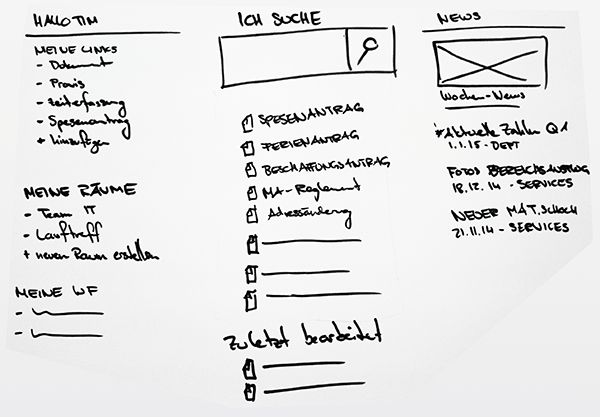 HALLO TIM
MEINE LINKS
- Dokument
- Praxis
- Zeiterfassung
- Spesenantrag
+ hinzufügen
MEINE RÄUME
- Team IT
- Lauftreff
+ neuen Raum erstellen
MEINE WF
-
-
ICH SUCHE
SPESENANTRAG
FERIENANTRAG
BESCHAFFUNGSANTRAG
MA-Reglement
Adressänderung
Zuletzt bearbeitet
NEWS
Wochen-News
Aktuelle Zahlen Q1
1.1.15 - DEPT
FOTOS BEREICHSAUSFLUG
18.12.14 - SERVICES
NEUER MA T. SCHOCH
21.11.14 - SERVICES